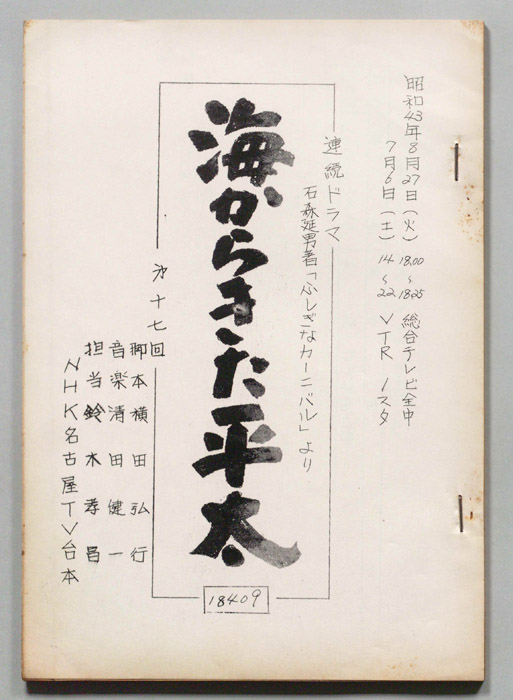 昭和43年8月27日(火) 18.00〜18.25 総合テレビ全中
7月6日(土) 14〜22 VTR 1スタ
連続ドラマ
石森延男著「ふしぎなカーニバル」より
海からきた平太
第十七回
脚本 横田弘行
音楽 清田健一
担当 鈴木孝昌
NHK名古屋TV台本
18409